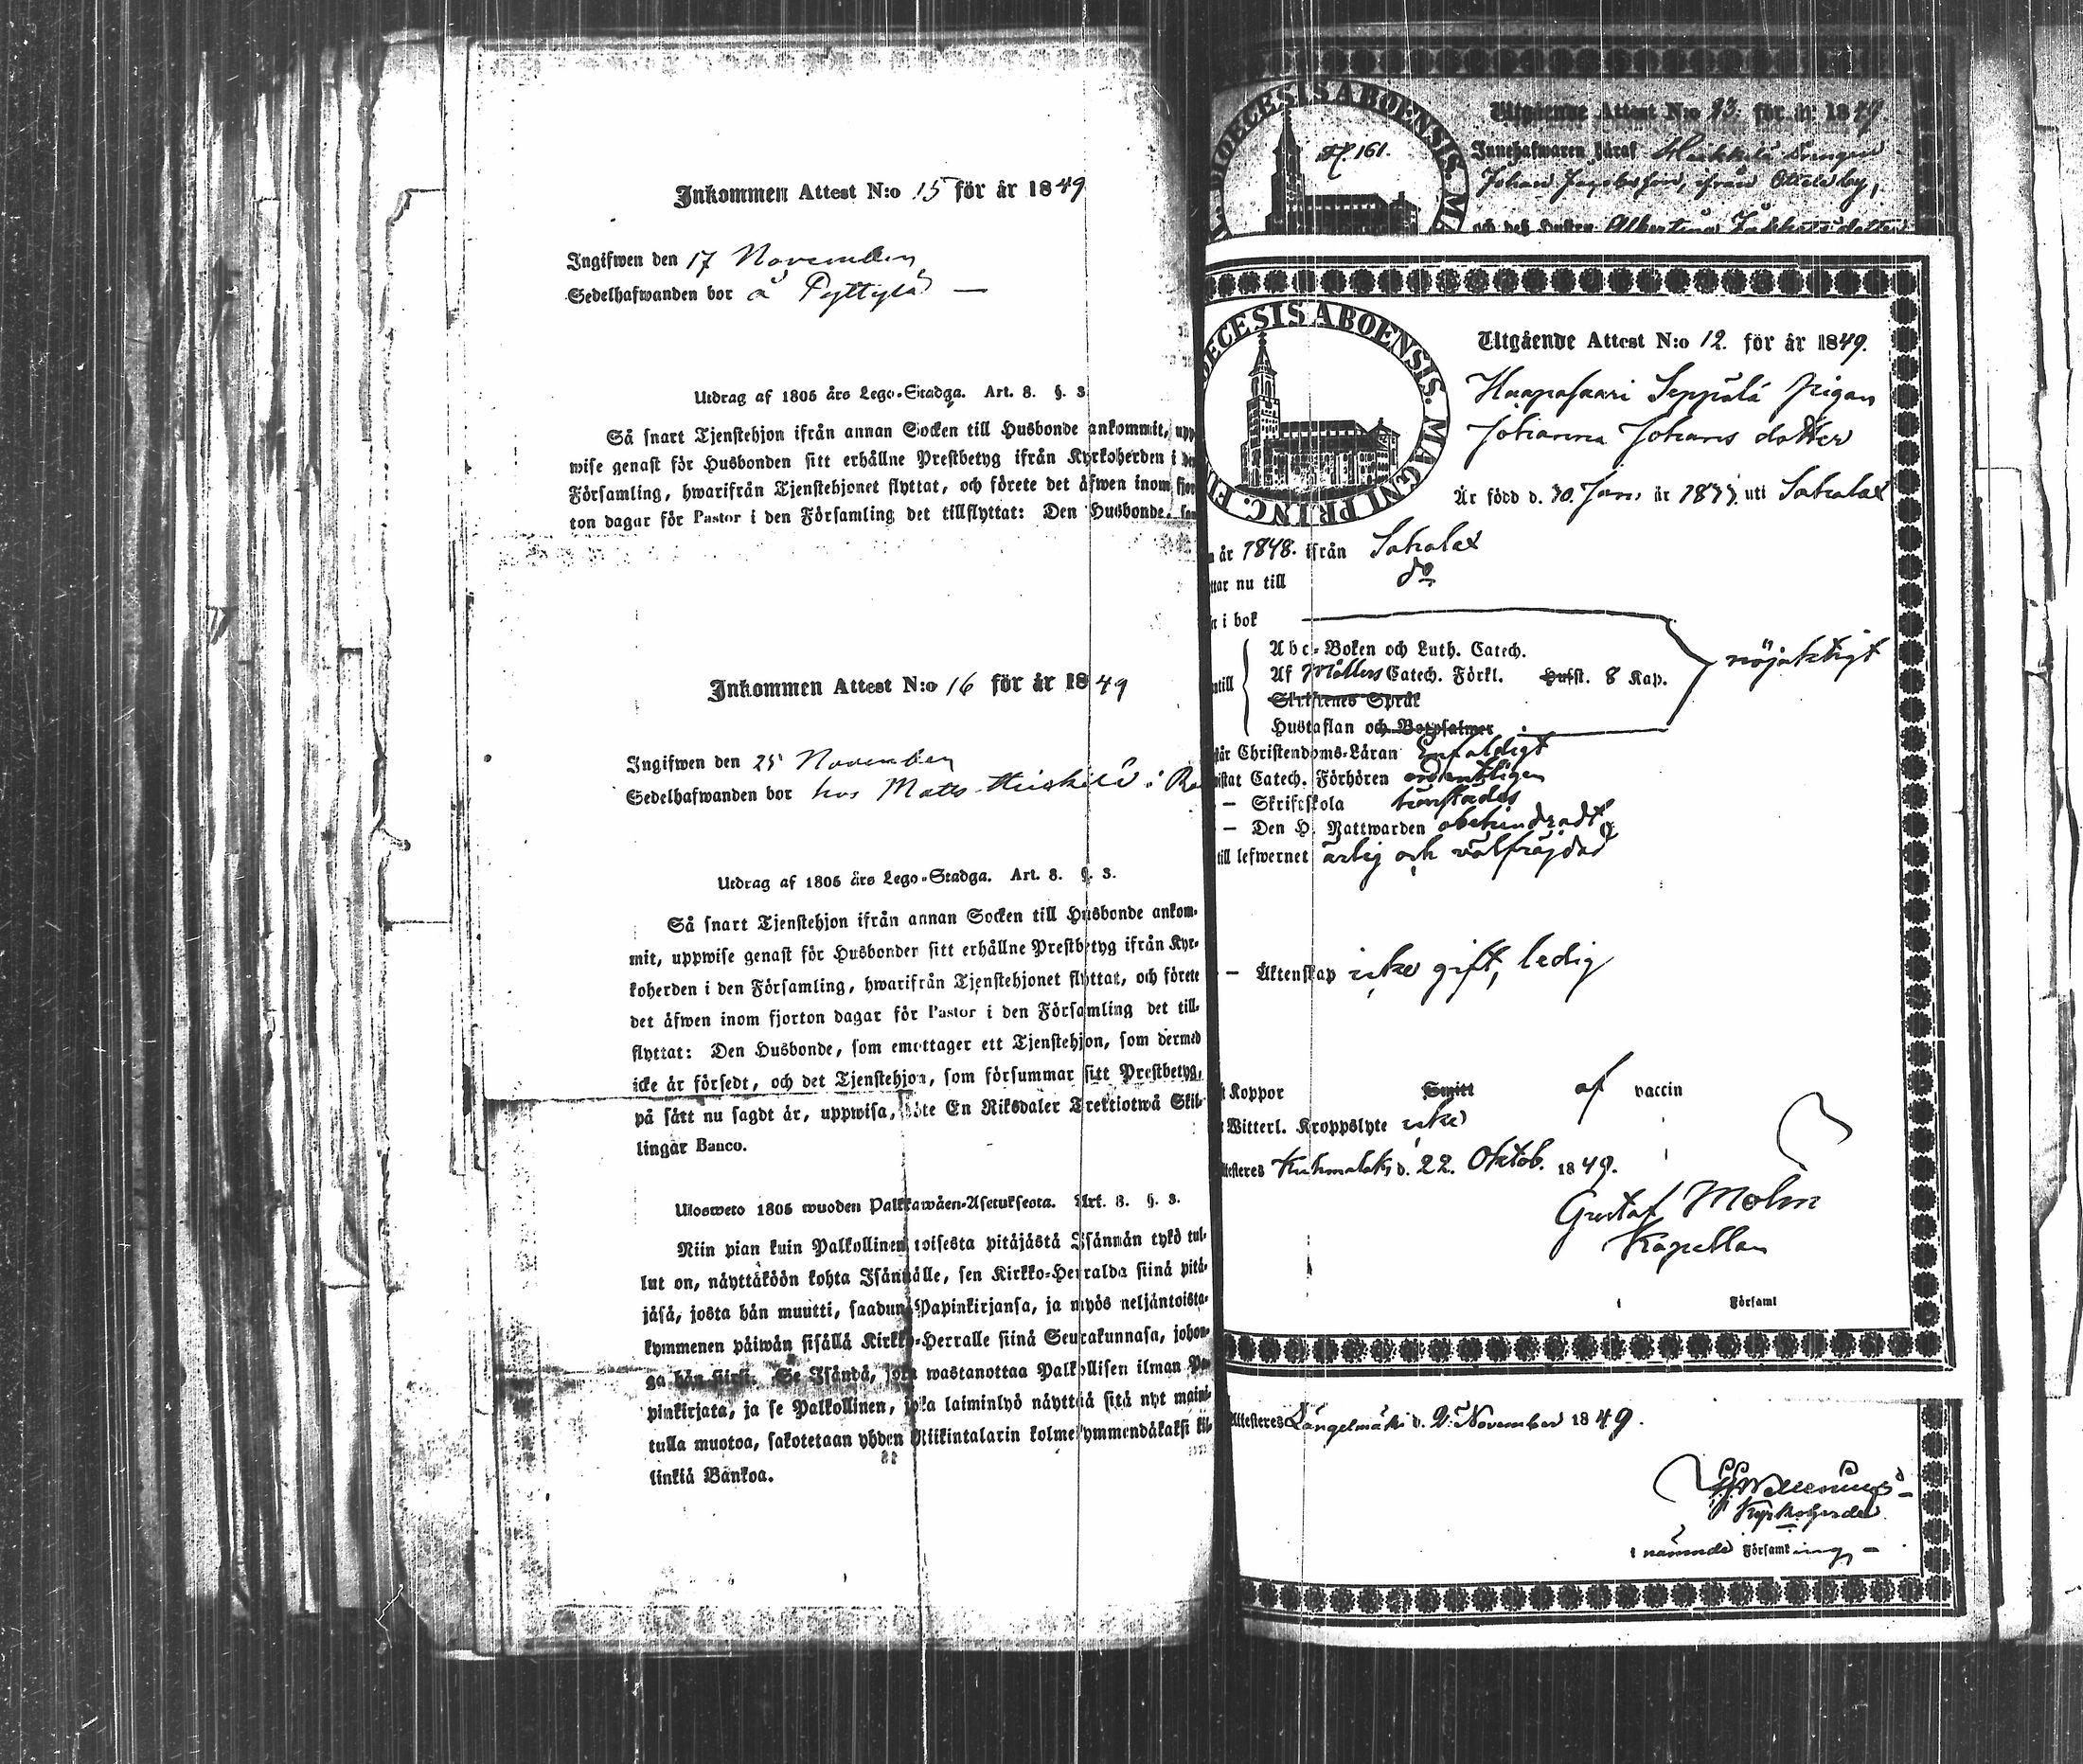 Inkommen Attest N:o 15 för år 1849
Ingifwen den 17 November
Sedelhafwanden bor å Pyttylä —
Utdrag af 1805 års Lego-Stadga. Art. 8. §. 3
Så snart Tjenstehjon ifrån annan Socken till Husbonde ankommit, upp
wise genast för Husbonden sitt erhållne Prestbetyg ifrån Kyrkoherden i den
Församling, hwarifrån Tjenstehjonet flyttat, och förete det äfwen inom fjor
ton dagar för Pastor i den Församling det tillflyttat: Den Husbonde, som
Inkommen Attest N:o 16 för år 1849
Ingifwen den 25 November
Sedelhafwanden bor hos Matts i
Utdrag af 1805 års Lego-Stadga. Art. 8. §. 3.
Så snart Tjenstehjon ifrån annan Socken till Husbonde ankom-
mit, uppwise genast för Husbonden sitt erhållne Prestbetyg ifrån Kyr-
koherden i den Församling, hwarifrån Tjenstehjonet flyttat, och förete
det äfwen inom fjorton dagar för Pastor i den Församling det till-
flyttat: Den Husbonde, som emottager ett Tjenstehjon, som dermed
icke är försedt, och det Tjenstehjon, som försummar sitt Prestbetyg,
på sätt nu sagdt är, uppwisa, böte En Riksdaler Trettiotwå Skil-
lingar Banco.
Ulosweto 1805 wuoden Palkkawäen-Asetuksesta. Art. 8. §. 3.
Niin pian kuin Palkollinen toisesta pitäjästä Isännän tykö tul-
lut on, näyttäköön kohta Isännälle, sen Kirkko-Herralda siinä pitä-
jäsä, josta hän muutti, saadun Papinkirjansa, ja myös neljäntoista-
kymmenen päiwän sisällä Kirkko-Herralle siinä Seurakunnasa, johon-
ga hän siirsi. Se Isändä, joka wastanottaa Palkollisen ilman Pa-
pinkirjata, ja se Palkollinen, joka laiminlyö näyttää sitä nyt maini-
tulla muotoa, sakotetaan yhden Riikintalarin kolmekymmendäkaksi kil-
linkiä Bankoa.
DIOECESIS ABOENSIS. MA
H. 161.
Utgående Attest N:o 23. för år 1849.
Innehafwaren häraf
Johan Jacobsson, ifrån
och deß hustru Albertina
DIOECESIS ABOENSIS. MAGNI PRINC. FI
Utgående Attest N:o 12. för år 1849.
Haapasaari Seppälä Pigan
Johanna Johans dotter
Är född d. 30. Jan. år uti Sahalax
år 1848. ifrån Sahalax
ttar nu till do
i bok
Abc-Boken och Luth. Catech.
Af Möllers Catech. Förkl. Hufst. 8 Kap.
Skriftenes Språk
Hustaflan och Botpsalmer
nöjaktigt
Christendoms-Läran Enfaldigt
Catech. Förhören ordentligen
— Skriftskola bevistades
— Den H. Nattwarden obehindradt
till lefwernet ärlig och välfräjdad
— Äktenskap icke gift, ledig
Koppor Smitt af vaccin
Witterl. Kroppslyte icke
Kuhmalaks d. 22. Oktob. 1849.
Gustaf Molin
Kapellan
Församl
Attesteres Längelmäki d. 2. November 1849.
Kyrkoherde
i nämnde Församling —